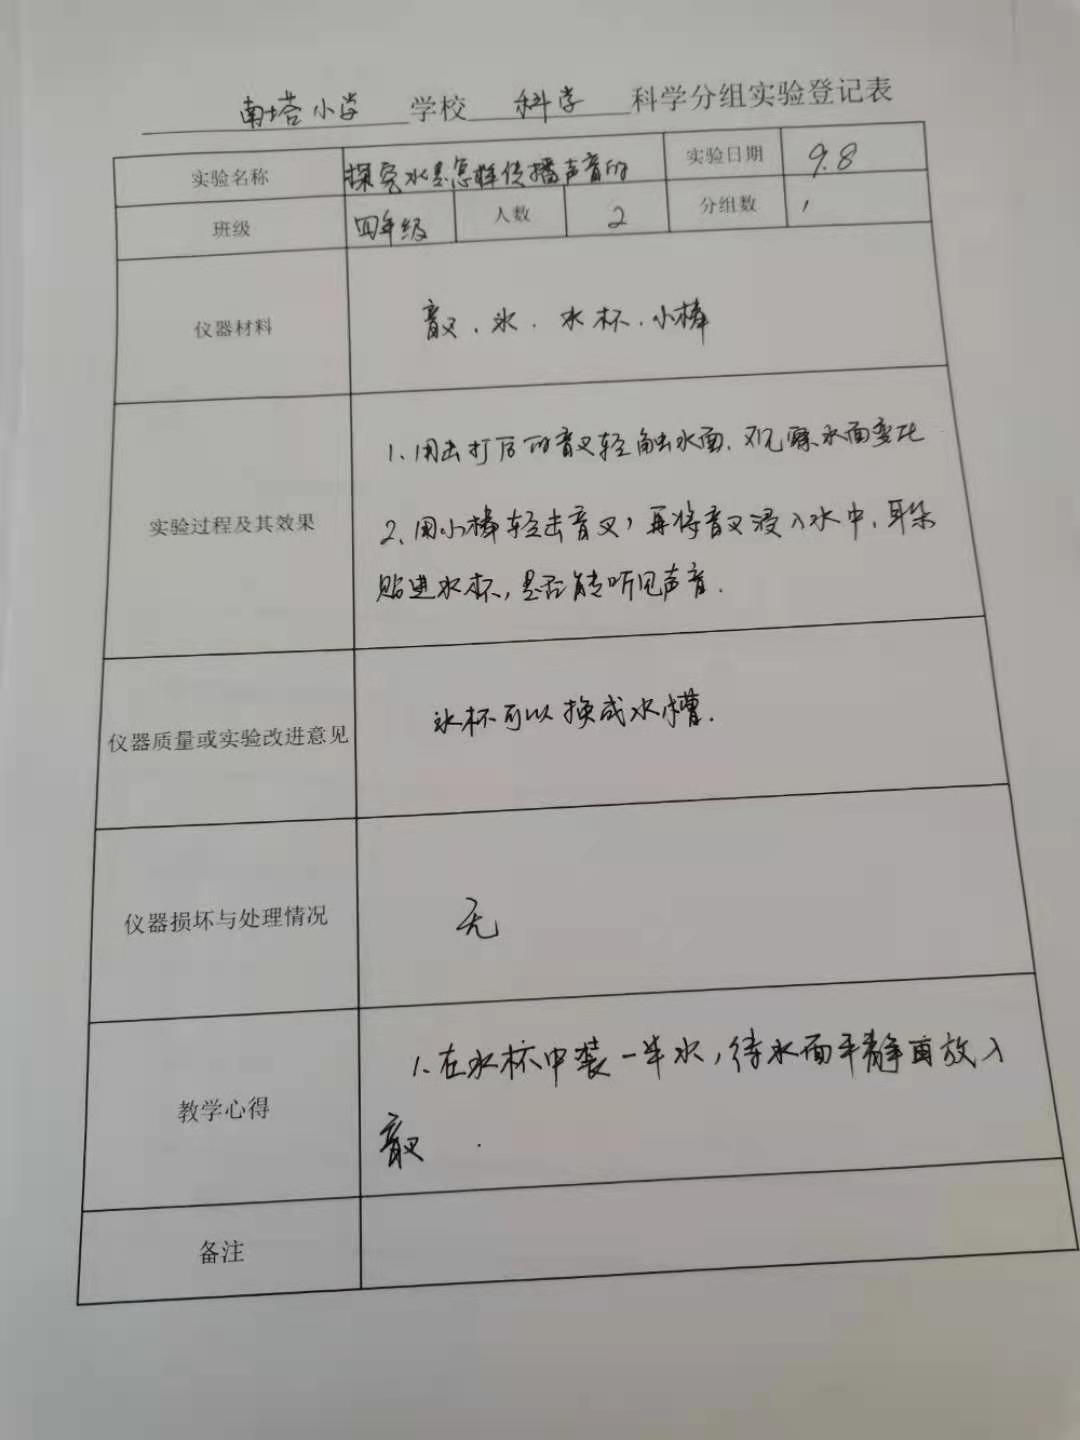 南塔小学 学校 科学 科学分组实验登记表
实验名称 探究水是怎样传播声音的 实验日期 9.8
班级 四年级 人数 2 分组数 1
仪器材料 音叉、水、水杯、小棒
1、用击打后的音叉轻触水面、观察水面变化
实验过程及其效果
2、用小棒轻击音叉,再将音叉浸入水中、耳朵
贴进水杯,是否能听见声音.
仪器质量或实验改进意见 水杯可以换成水槽.
仪器损坏与处理情况 无
1、在水杯中装一半水,待水面平静再放入
教学心得
音叉.
备注